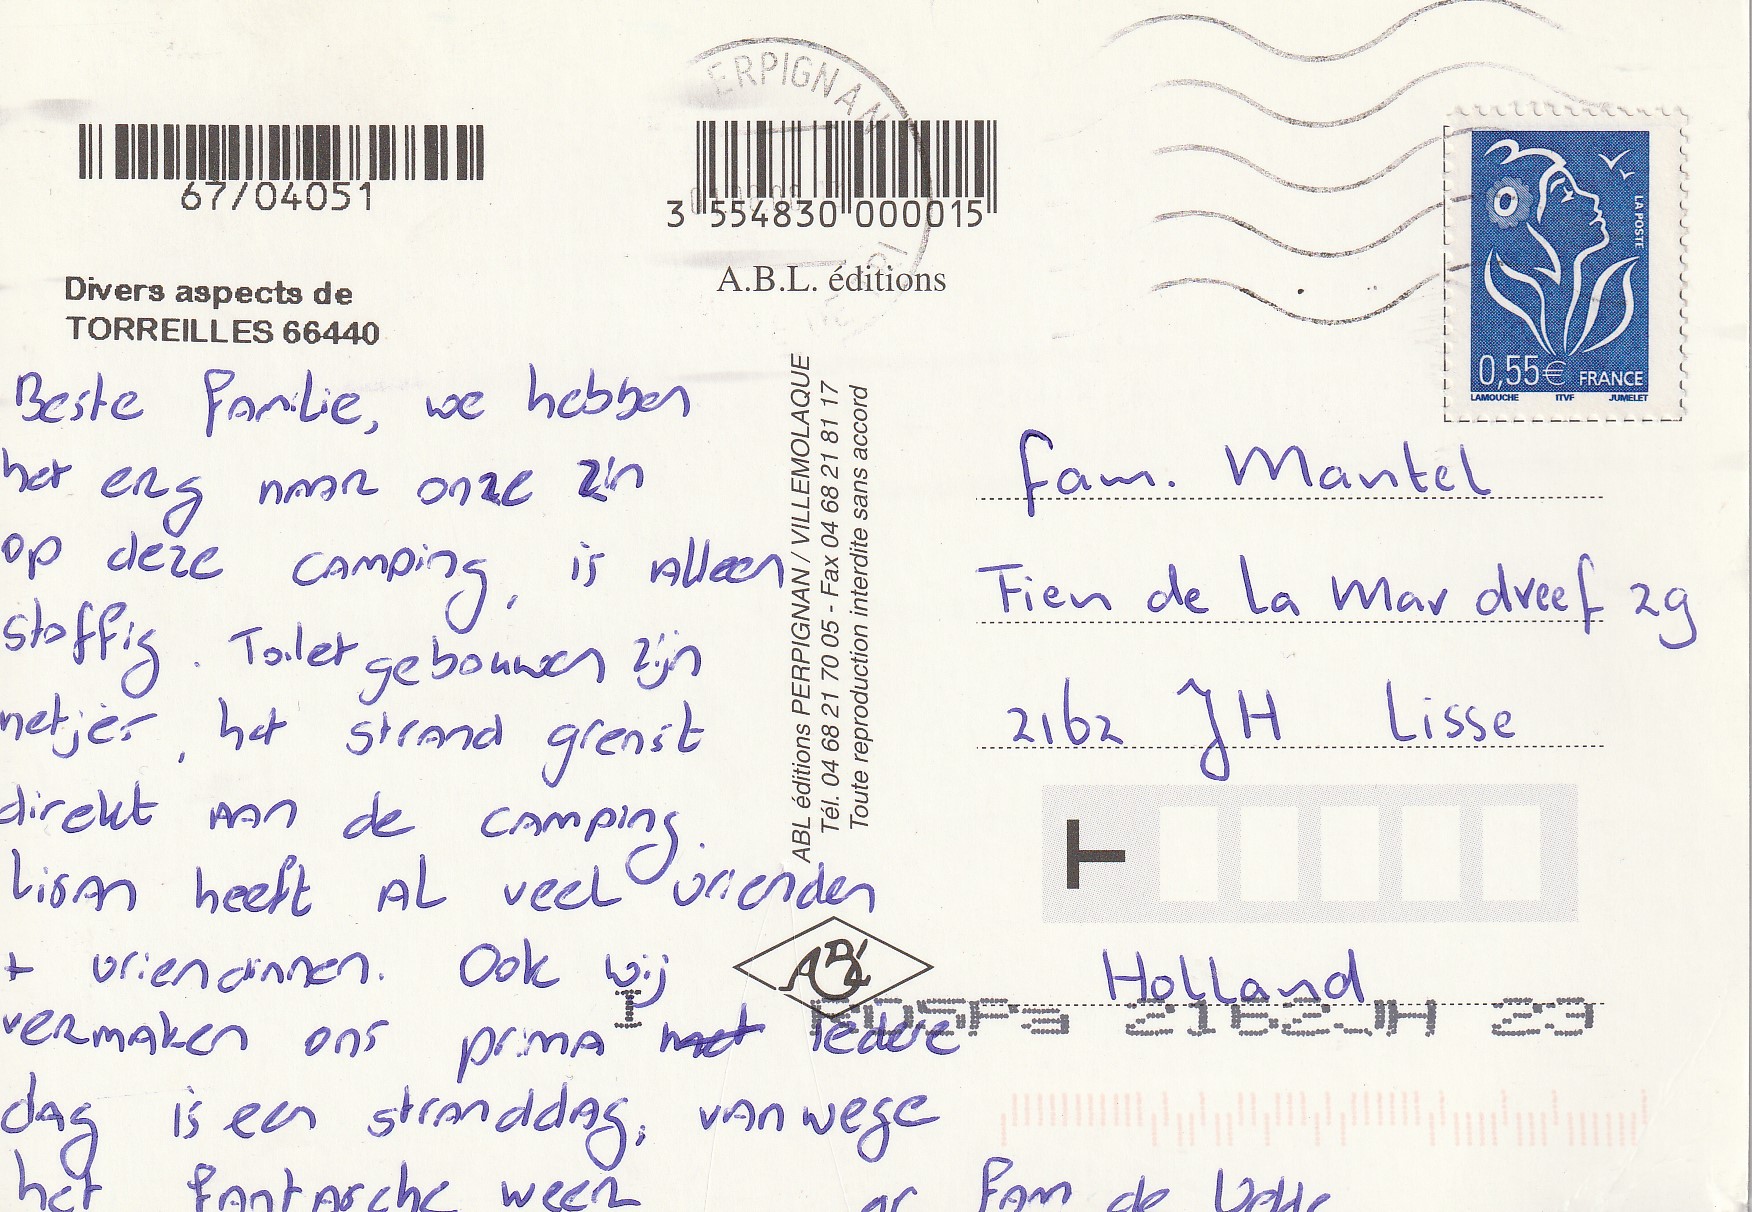 ERPIGNAN
67/04051
3 554830 000015
A.B.L. éditions
Divers aspects de
TORREILLES 66440
LA POSTE
0,55€ FRANCE
LAMOUCHE ITVF JUMELET
Beste familie, we hebben
het erg naar onze zin
op deze camping, is alleen
stoffig. Toilet gebouwen zijn
netjes, het strand grenst
direkt aan de camping.
Lisan heeft al veel vrienden
+ vriendinnen. Ook wij
vermaken ons prima met iedere
dag is een stranddag, vanwege
het fantasche weer
gr fam de
ABL éditions PERPIGNAN / VILLEMOLAQUE
Tél. 04 68 21 70 05 - Fax 04 68 21 81 17
Toute reproduction interdite sans accord
fam. Mantel
Fien de la Mar dreef 29
2162 JH Lisse
T
ABL
Holland
I
2162JH 29